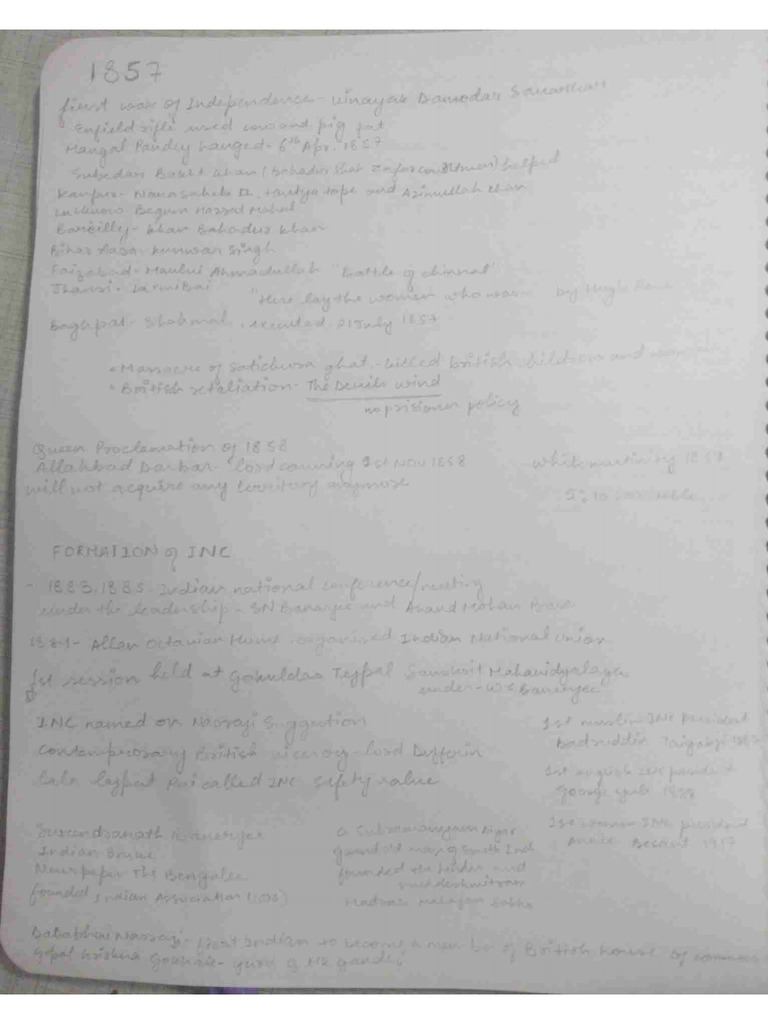 1857
first war of Independence - Vinayak Damodar Savarkar
Enfield rifle used cow and pig fat
Mangal Pandey hanged - 6th Apr. 1857
Subedar Bakht khan (Bahadur Shah Zafar helped
Kanpur - Nana saheb II, tantya tope and Azimullah khan
Lucknow Begum Hazrat Mahal
Bareilly - khan Bahadur khan
Bihar Kunwar Singh
Faizabad - Maulvi Ahmadullah "Battle of chinhat"
Jhansi - Laxmibai "Here lay the women who was by Hugh Rose
Baghpat - Shahmal, executed 21 July 1857
• Massacre of satichura ghat - killed british children and women
• British retaliation - The Devils wind
no prisioner policy
Queen Proclamation of 1858
Allahbad Darbar - lord canning 1st Nov 1858
will not acquire any territory anymore
white mutiny
FORMATION of INC
- 1883, 1885 - Indian national conference/meeting
under the leadership - SN Banerjee and Anand Mohan Bose
Allan Octavian Hume organised Indian National union
1st session held at Gokuldas Tejpal Sanskrit Mahavidyalaya
under - W C Banerjee
INC named on Naoroji Suggestion
Contemporary British viceroy - lord Dufferin
Lala lajpat Rai called INC safety valve
1st muslim INC president
Badruddin Taiyabji
1st english INC president
George yule 1888
1st women INC president
Annie Besant 1917
Surendranath Banerjee
Indian Bruke
Newspaper The Bengalee
founded Indian Association
G Subramaniyam Aiyar
grand old man of South Ind
founded the hindu and
Madras Mahajan Sabha
Dababhai Naoroji - first Indian to become a member of British house of commons
Gopal krishna Gokhale - guru of MK gandhi